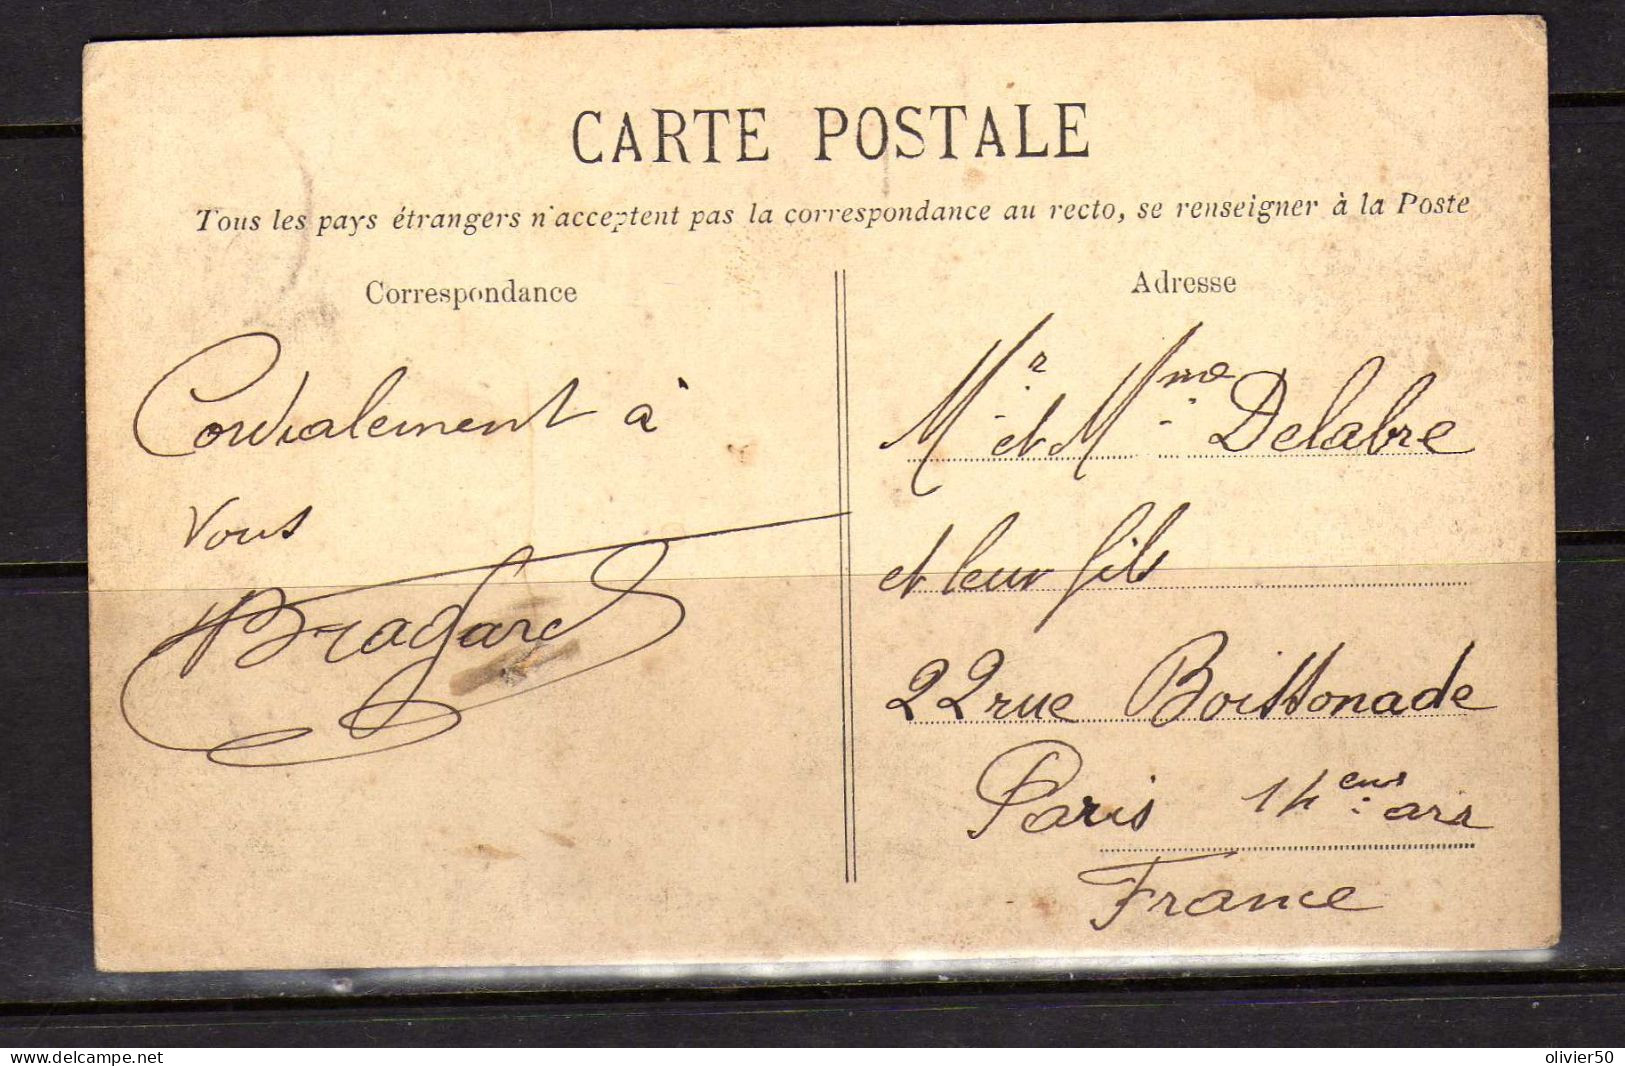 CARTE POSTALE
Tous les pays étrangers n'acceptent pas la correspondance au recto, se renseigner à la Poste
Correspondance
Cordialement à
vous
Bragard
Adresse
Mr et Mme Delabre
et leur fils
22 rue Boissonade
Paris 14ème arr
France
www.delcampe.net
olivier50